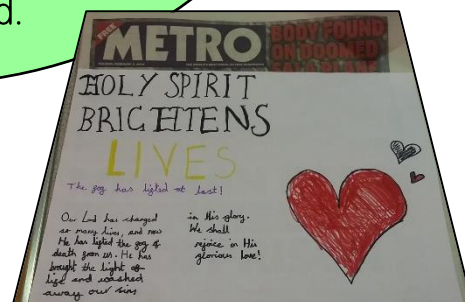 d.
FREE
METRO
BODY FOUND
ON DOOMED
HOLY SPIRIT
BRIGHTENS
LIVES
The fog has lifted at last!
Our Lord has changed
so many lives, and now
He has lifted the fog of
death from us. He has
brought the light of
life and washed
away our sins
in His glory.
We shall
rejoice in His
glorious love!